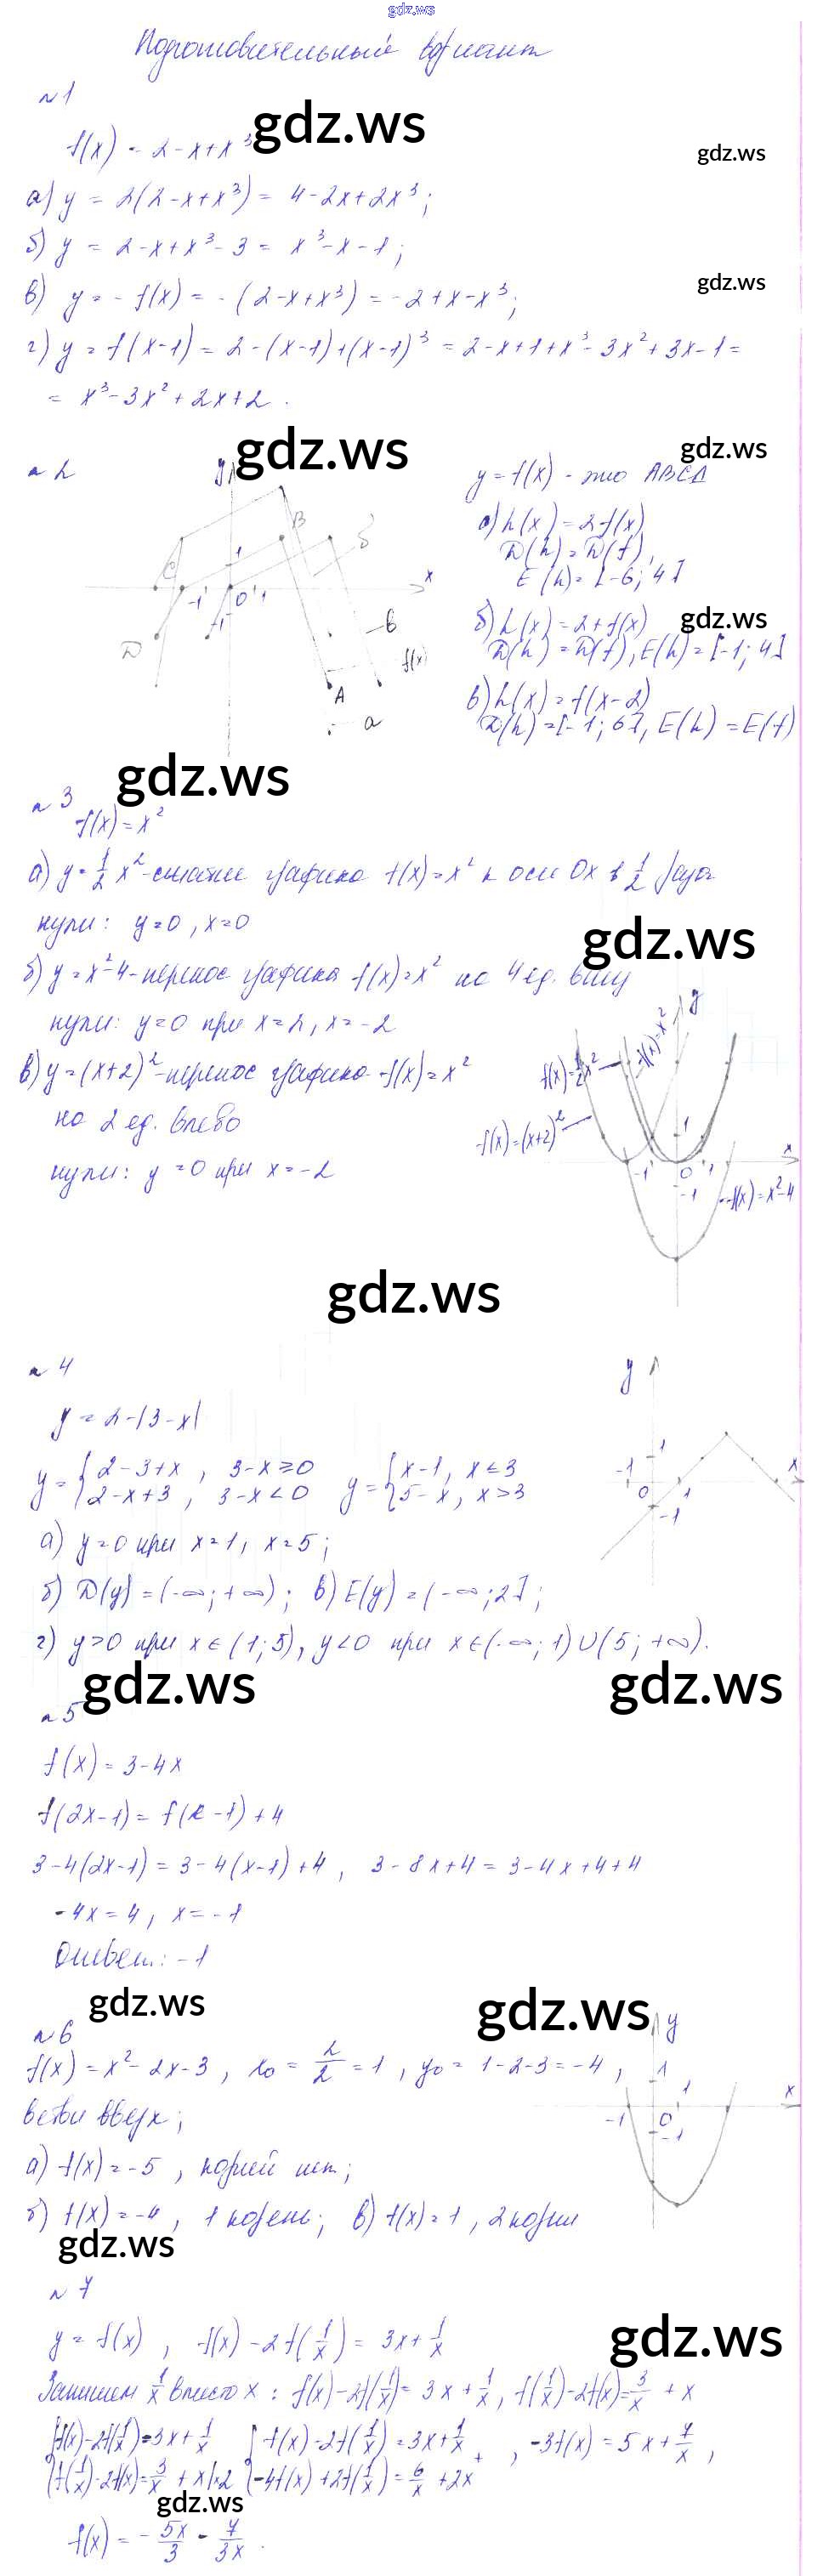 gdz.ws
Подготовительный вариант
№1
gdz.ws
f(x) = 2-x+x³
gdz.ws
а) y = 2(2-x+x³) = 4-2x+2x³;
б) y = 2-x+x³-3 = x³-x-1;
gdz.ws
в) y = -f(x) = -(2-x+x³) = -2+x-x³;
г) y = f(x-1) = 2-(x-1)+(x-1)³ = 2-x+1+x³-3x²+3x-1=
= x³-3x²+2x+2.
gdz.ws
gdz.ws
№2
y
B
C
б
1
x
-1
0
1
-1
в
D
f(x)
A
а
y=f(x) - это ABCD
а) h(x)=2f(x)
D(h)=D(f),
E(h)=[-6;4]
gdz.ws
б) h(x)=2+f(x)
D(h)=D(f), E(h)=[-1;4]
в) h(x)=f(x-2)
D(h)=[-1;6], E(h)=E(f)
gdz.ws
№3
f(x)=x²
а) y=1/2 x² - сжатие графика f(x)=x² к оси Ox в 1/2 раза
нули: y=0, x=0
gdz.ws
б) y=x²-4 - перенос графика f(x)=x² на 4 ед. вниз
нули: y=0 при x=2, x=-2
в) y=(x+2)² - перенос графика f(x)=x²
на 2 ед. влево
нули: y=0 при x=-2
y
f(x)=x²
f(x)=1/2x²
f(x)=(x+2)²
1
x
-1
0
1
-1
f(x)=x²-4
gdz.ws
№4
y = 2-|3-x|
y={2-3+x, 3-x≥0 y={x-1, x≤3
2-x+3, 3-x<0 5-x, x>3
y
1
x
-1
0
1
-1
а) y=0 при x=1, x=5;
б) D(y)=(-∞;+∞); в) E(y)=(-∞;2];
г) y>0 при x∈(1;5), y<0 при x∈(-∞;1)∪(5;+∞).
gdz.ws
gdz.ws
№5
f(x)=3-4x
f(2x-1)=f(x-1)+4
3-4(2x-1)=3-4(x-1)+4, 3-8x+4=3-4x+4+4
-4x=4, x=-1
Ответ: -1
gdz.ws
gdz.ws
№6
f(x)=x²-2x-3, x₀=2/2=1, y₀=1-2-3=-4,
ветви вверх;
y
1
1
x
-1
0
-1
а) f(x)=-5, корней нет;
б) f(x)=-4, 1 корень; в) f(x)=1, 2 корня
gdz.ws
№7
y=f(x), f(x)-2f(1/x)=3x+1/x
gdz.ws
Запишем 1/x вместо x: f(x)-2f(1/x)=3x+1/x, f(1/x)-2f(x)=3/x+x
{f(x)-2f(1/x)=3x+1/x {f(x)-2f(1/x)=3x+1/x +, -3f(x)=5x+7/x,
f(1/x)-2f(x)=3/x+x|×2 -4f(x)+2f(1/x)=6/x+2x
gdz.ws
f(x)=-5x/3-7/3x.